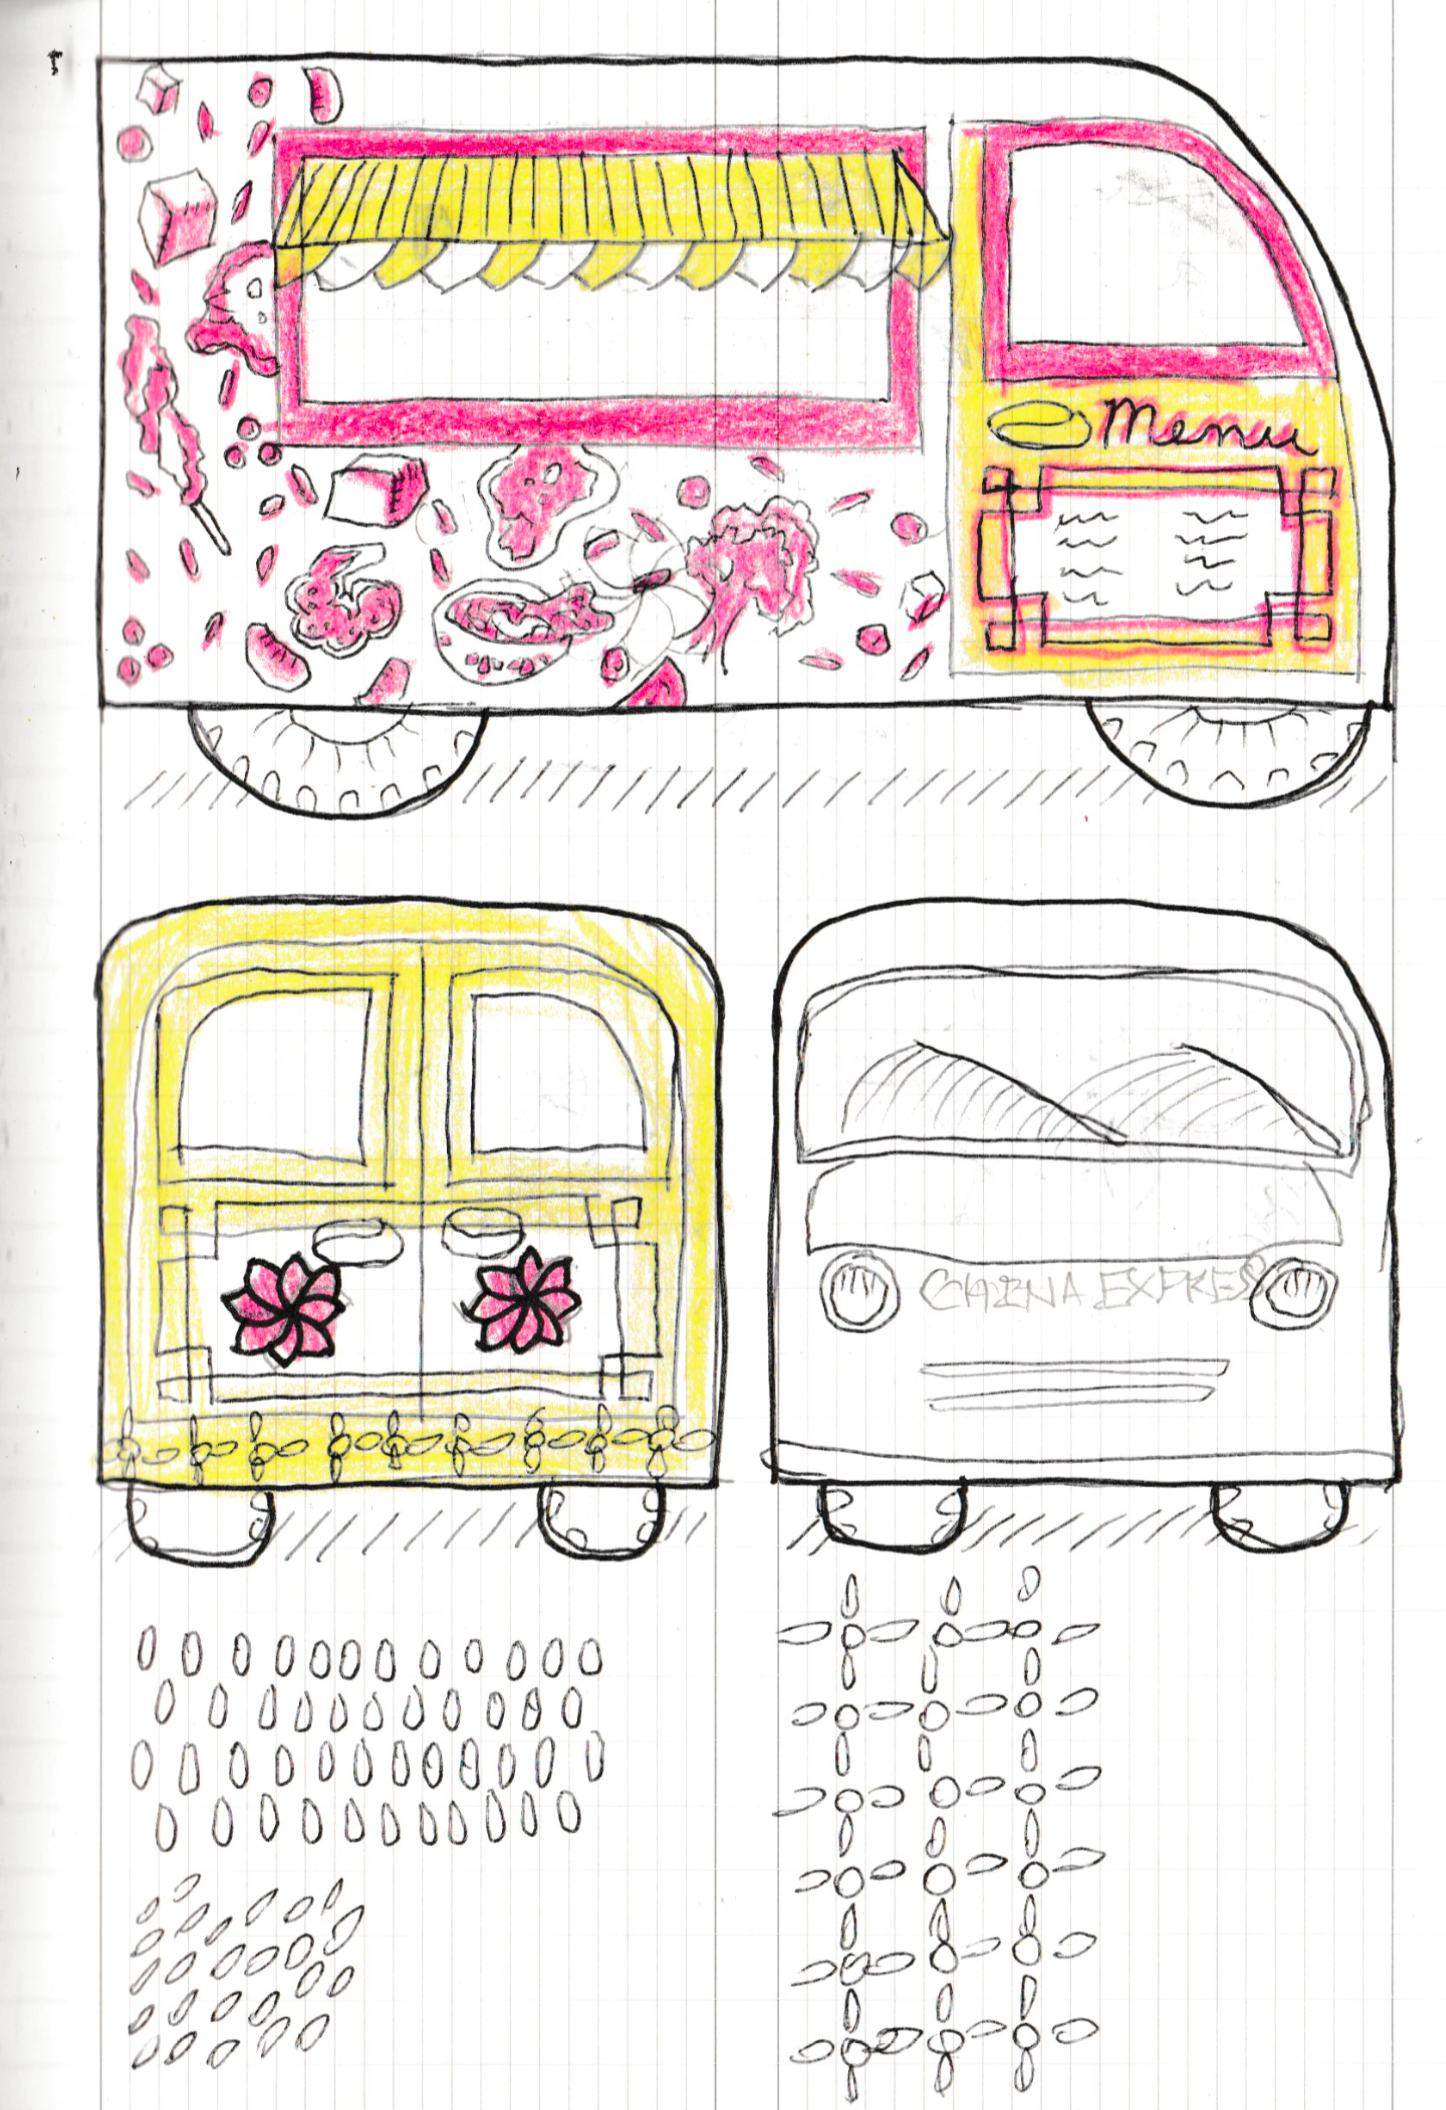 Menu
CHINA EXPRESS